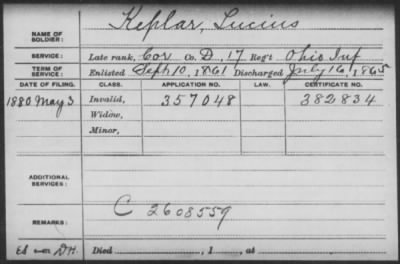 Keplar, Lucius
NAME OF SOLDIER:
SERVICE: Late rank, Cor Co. D, 17 Reg't Ohio Inf
TERM OF SERVICE: Enlisted Sept 10, 1861 Discharged July 16, 1865
DATE OF FILING. CLASS. APPLICATION NO. LAW. CERTIFICATE NO.
1880 May 3 Invalid, 357048 382834
Widow,
Minor,
ADDITIONAL SERVICES:
C 2608559
REMARKS:
Died , 1 , at